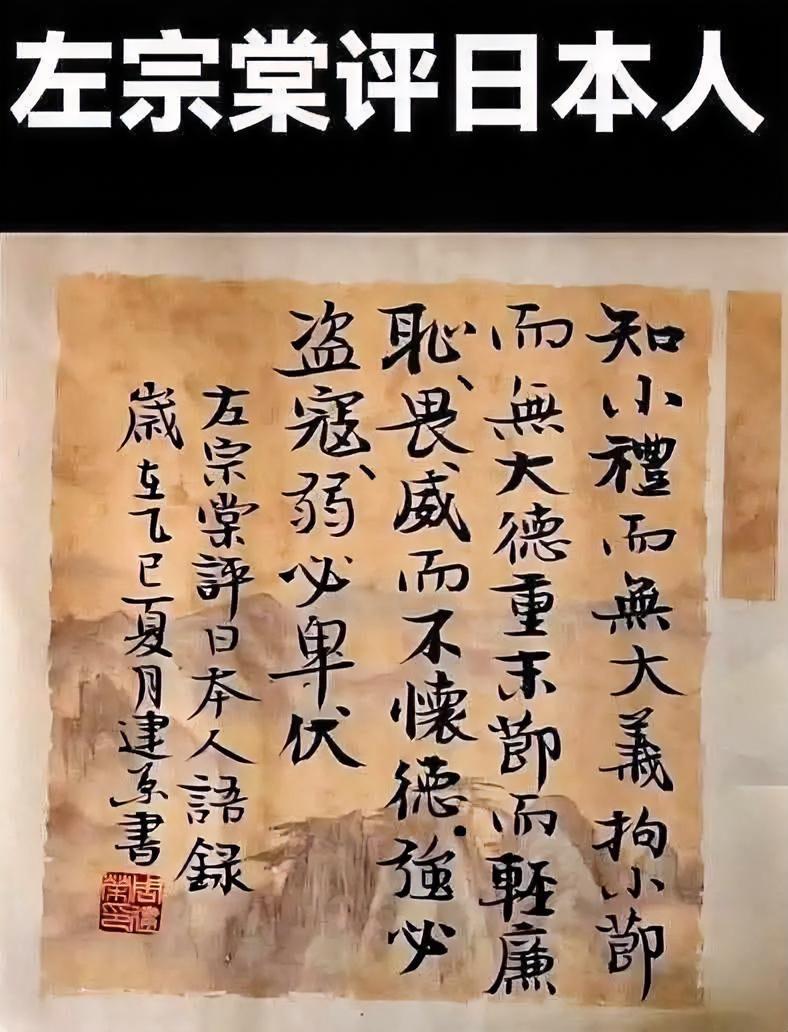 左宗棠评日本人
知小禮而無大義拘小節
而無大德重末節而輕廉
恥、畏威而不懷德.強必
盗寇、弱必卑伏
左宗棠評日本人語録
嵗在乙巳夏月建榮書